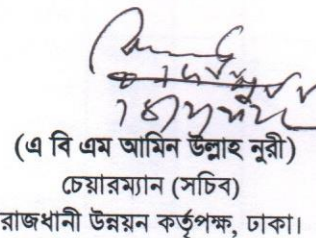 (এ বি এম আমিন উল্লাহ নুরী)
চেয়ারম্যান (সচিব)
রাজধানী উন্নয়ন কর্তৃপক্ষ, ঢাকা।